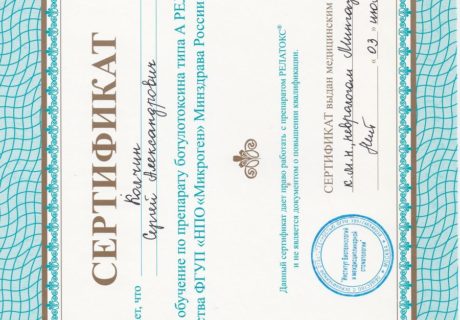 СЕРТИФИКАТ
ет, что Колчин
Сергей Александрович
обучение по препарату ботулотоксина типа А РЕЛ
ства ФГУП «НПО «Микроген» Минздрава России
Данный сертификат дает право работать с препаратом РЕЛАТОКС®
и не является документом о повышении квалификации.
СЕРТИФИКАТ выдан медицинским
к.м.н, неврологом
« 03 » июл